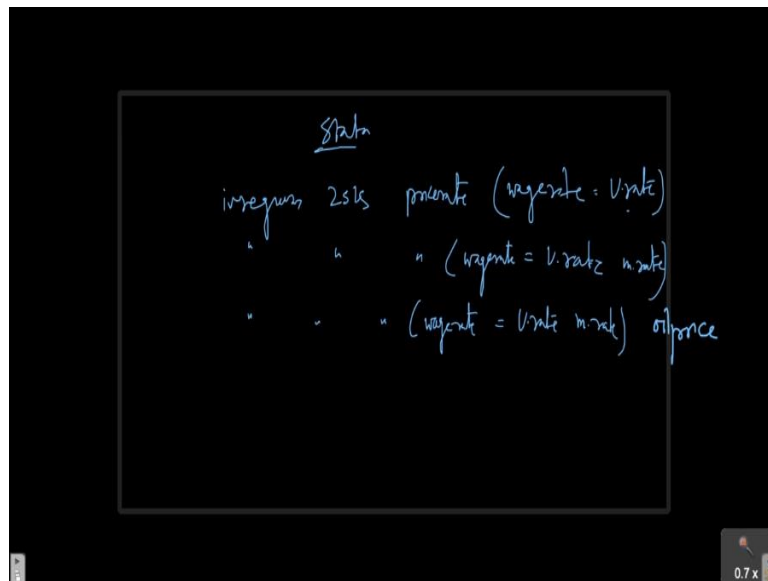 Stata
ivregress 2sls pricerate (wagerate = U.rate)
" " " (wagerate = U.rate m.rate)
" " " (wagerate = U.rate m.rate) oilprice
0.7 x